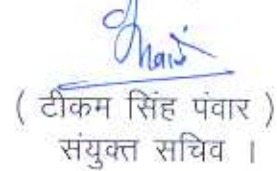 ( टीकम सिंह पंवार )
संयुक्त सचिव ।